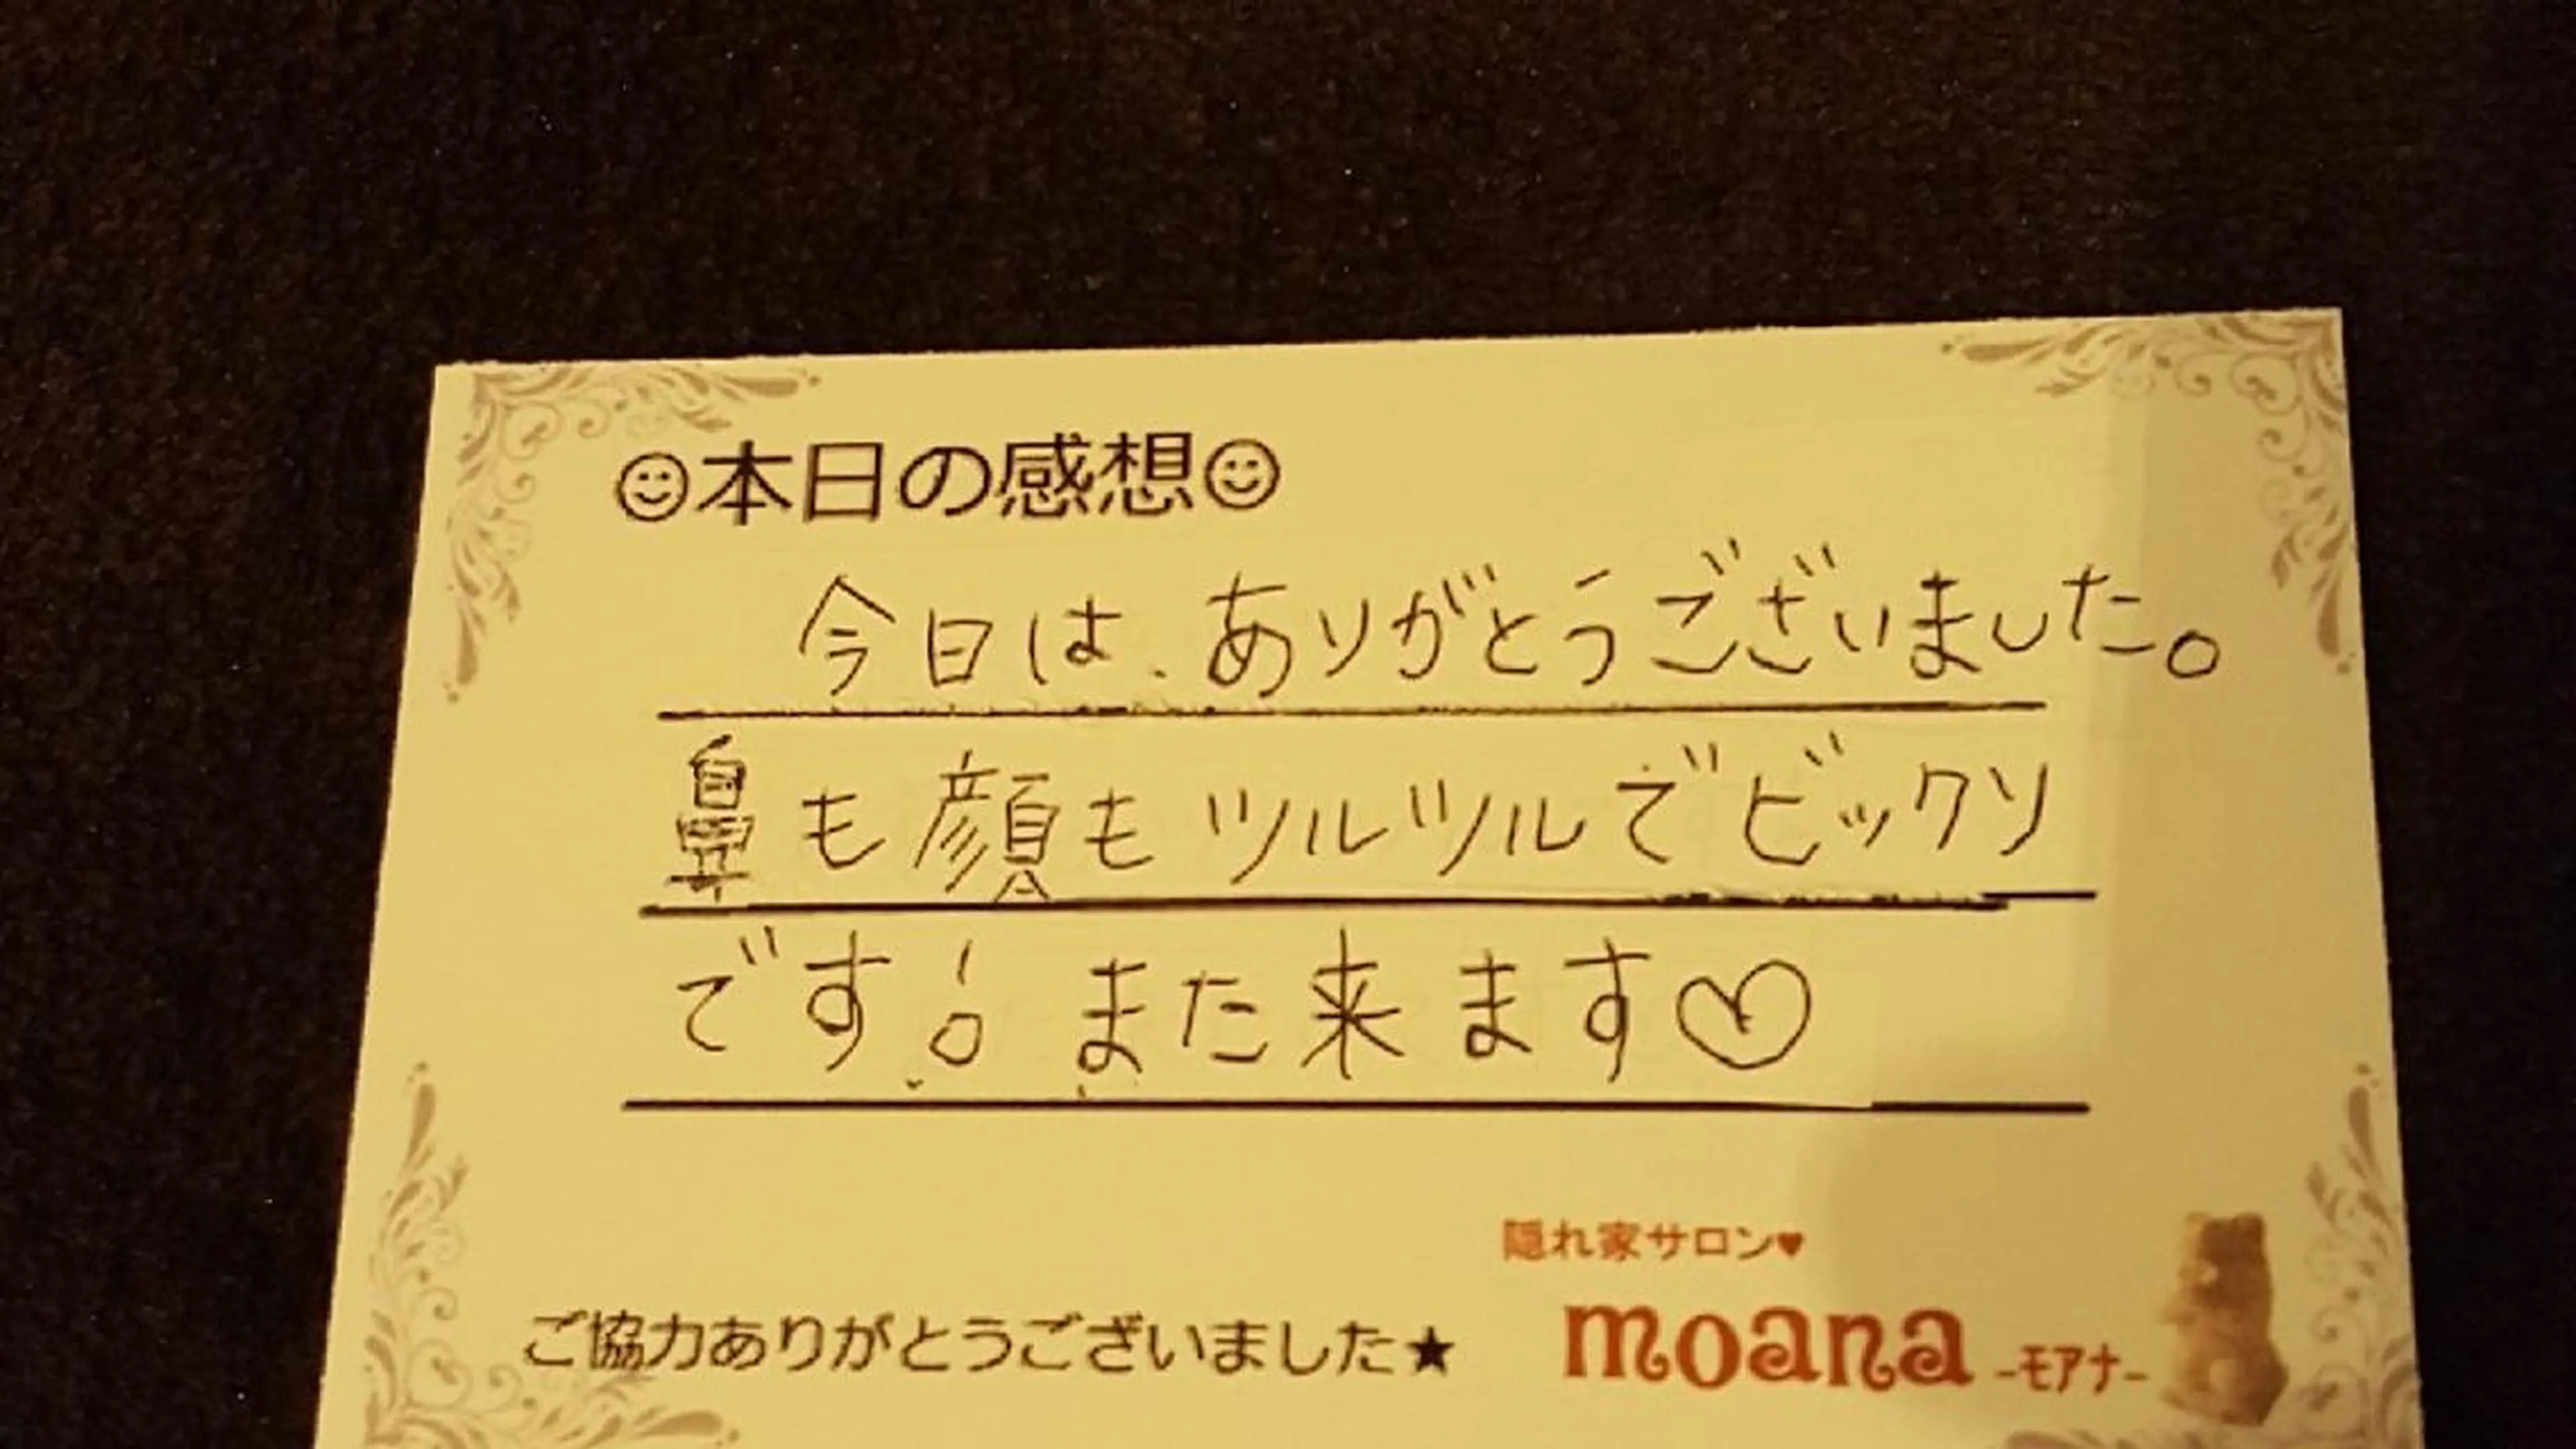 ☺本日の感想☺
今日は、ありがとうございました。
鼻も顔もツルツルでビックリ
です! また来ます♡
隠れ家サロン♥
ご協力ありがとうございました★ moana -モアナ-